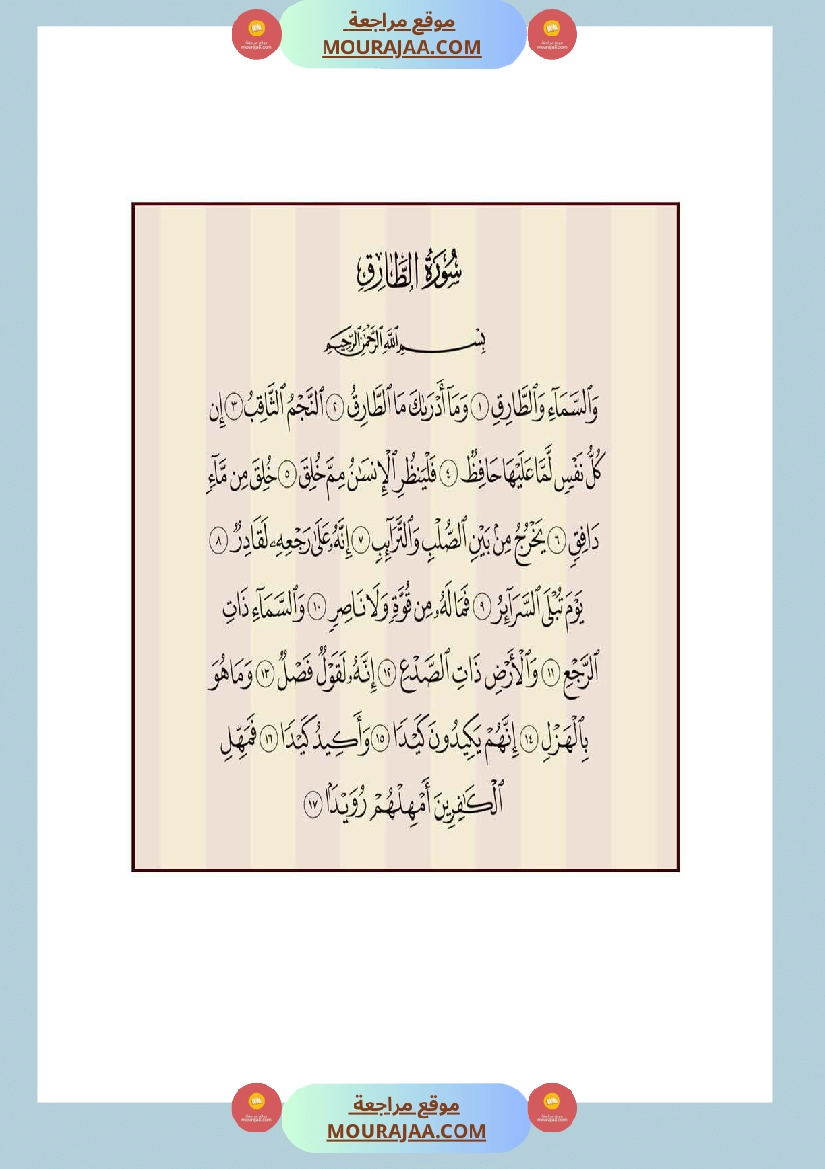 موقع مراجعة
MOURAJAA.COM
سُورَةُ الطَّارِقِ
بِسْمِ ٱللَّهِ ٱلرَّحْمَٰنِ ٱلرَّحِيمِ
وَٱلسَّمَآءِ وَٱلطَّارِقِ ١ وَمَآ أَدْرَىٰكَ مَا ٱلطَّارِقُ ٢ ٱلنَّجْمُ ٱلثَّاقِبُ ٣ إِن
كُلُّ نَفْسٍ لَّمَّا عَلَيْهَا حَافِظٌ ٤ فَلْيَنظُرِ ٱلْإِنسَٰنُ مِمَّ خُلِقَ ٥ خُلِقَ مِن مَّآءٍ
دَافِقٍ ٦ يَخْرُجُ مِنۢ بَيْنِ ٱلصُّلْبِ وَٱلتَّرَآئِبِ ٧ إِنَّهُۥ عَلَىٰ رَجْعِهِۦ لَقَادِرٌ ٨
يَوْمَ تُبْلَى ٱلسَّرَآئِرُ ٩ فَمَا لَهُۥ مِن قُوَّةٍ وَلَا نَاصِرٍ ١٠ وَٱلسَّمَآءِ ذَاتِ
ٱلرَّجْعِ ١١ وَٱلْأَرْضِ ذَاتِ ٱلصَّدْعِ ١٢ إِنَّهُۥ لَقَوْلٌ فَصْلٌ ١٣ وَمَا هُوَ
بِٱلْهَزْلِ ١٤ إِنَّهُمْ يَكِيدُونَ كَيْدًا ١٥ وَأَكِيدُ كَيْدًا ١٦ فَمَهِّلِ
ٱلْكَٰفِرِينَ أَمْهِلْهُمْ رُوَيْدًۢا ١٧
موقع مراجعة
MOURAJAA.COM